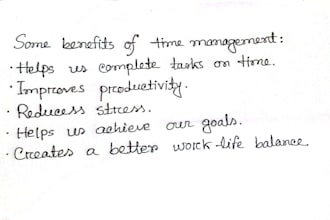 Some benefits of time management:
· Helps us complete tasks on time.
· Improves productivity.
· Reducess stress.
· Helps us achieve our goals.
· Creates a better work-life balance.